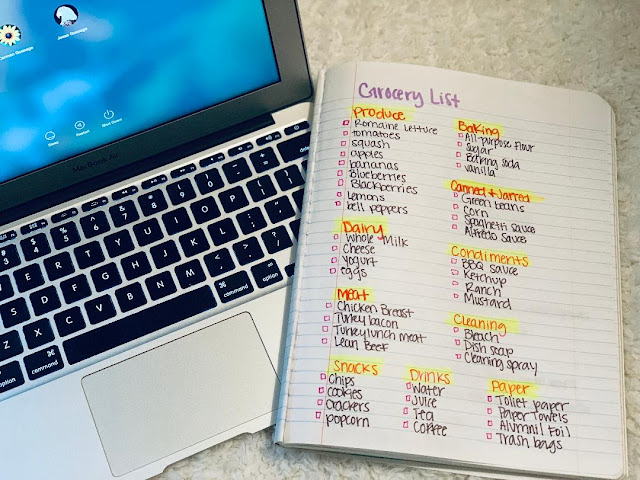 Sleep
Restart
Shut Down
MacBook Air
Grocery List
Produce
Romaine Lettuce
tomatoes
squash
apples
bananas
Blueberries
Blackberries
Lemons
bell peppers
Dairy
Whole Milk
Cheese
yogurt
eggs
Meat
Chicken Breast
Turkey bacon
Turkey lunch meat
Lean Beef
Snacks
Chips
cookies
Crackers
popcorn
Drinks
Water
Juice
Tea
Coffee
Baking
All-purpose flour
Sugar
Baking soda
vanilla
Canned + Jarred
Green beans
Corn
Spaghetti sauce
Alfredo sauce
Condiments
BBQ sauce
Ketchup
Ranch
Mustard
Cleaning
Bleach
Dish soap
Cleaning spray
Paper
Toliet paper
Paper Towels
Alumnil Foil
Trash bags
command
option
command
option